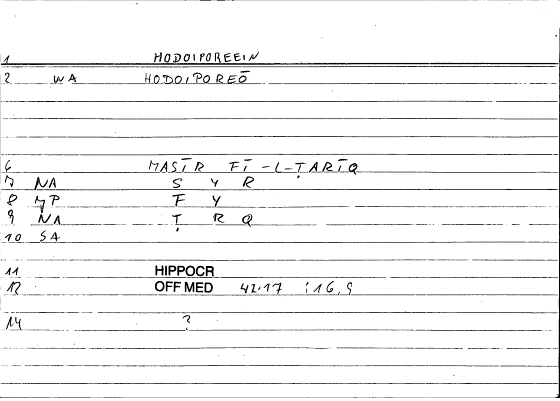 1 HODOIPOREEIN
2 WA HODOIPOREŌ
6 MASĪR FĪ -L-ṬARĪQ
7 NA S Y R
8 MP F Y
9 NA Ṭ R Q
10 SA
11 HIPPOCR
12 OFF MED 42.17 :16,9
14 ?